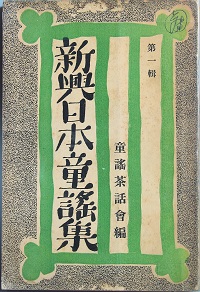 第一輯
童謠茶話會編
新興日本童謠集